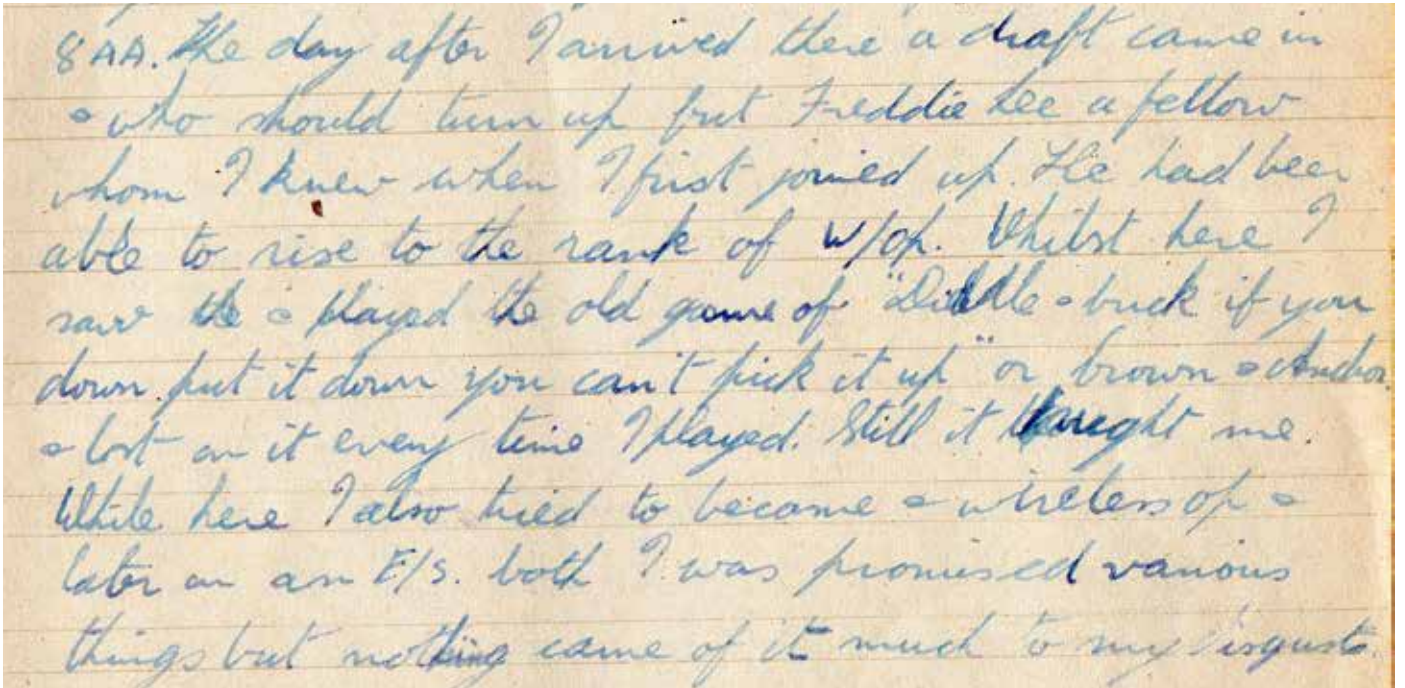 8 AA. The day after I arrived there a draft came in
& who should turn up but Freddie Lee a fellow
whom I knew when I first joined up. He had been
able to rise to the rank of W/Op. Whilst here I
saw the & played the old game of "Diddle & buck if you
down put it down you can't pick it up" or brown & Anchor.
& lost on it every time I played. Still it taught me.
While here I also tried to became a wireless op &
later on an F/S. both I was promised various
things but nothing came of it much to my disgust.